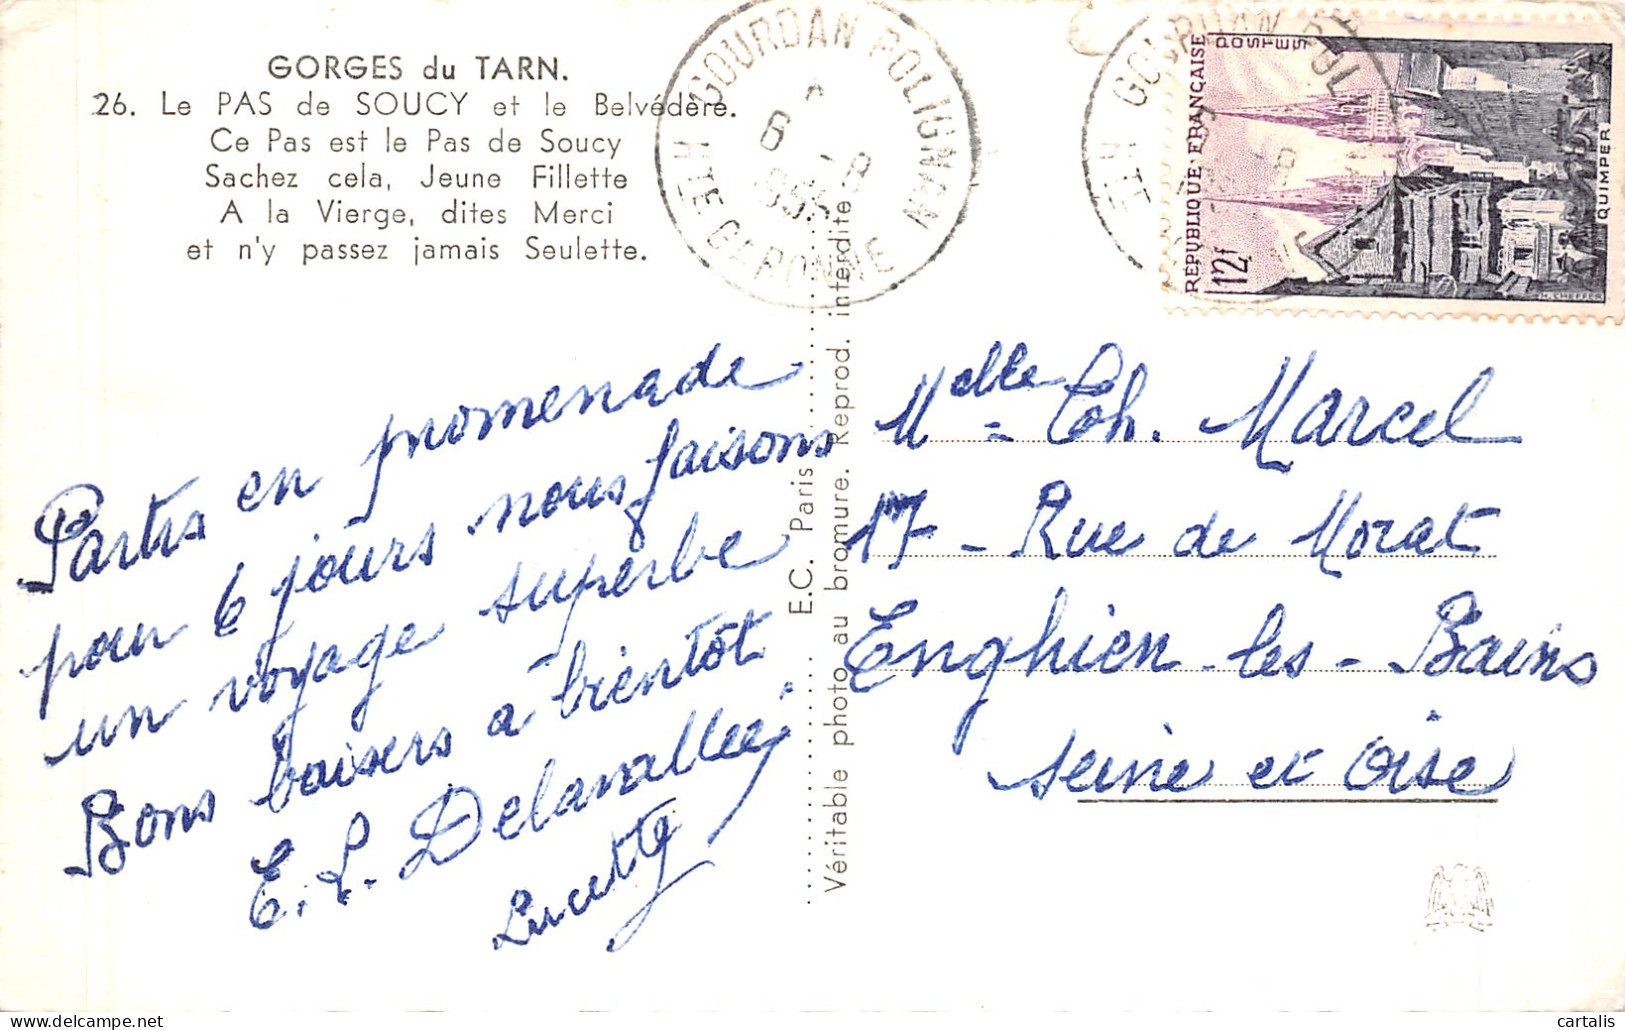 GORGES du TARN.
26. Le PAS de SOUCY et le Belvédère.
Ce Pas est le Pas de Soucy
Sachez cela, Jeune Fillette
A la Vierge, dites Merci
et n'y passez jamais Seulette.
GOURDAN POLIGNAN
6 -8
1955
HTE GARONNE
RÉPUBLIQUE FRANÇAISE
POSTES
12f
QUIMPER
H. CHEFFER
Parties en promenade
pour 6 jours nous faisons
un voyage superbe
Bons baisers à bientôt
E. L. Delavallée
Lucette
E.C. Paris
Véritable photo au bromure. Reprod. interdite
Melle Ch. Marcel
17 - Rue de Morat
Enghien-les-Bains
Seine et Oise
cartalis